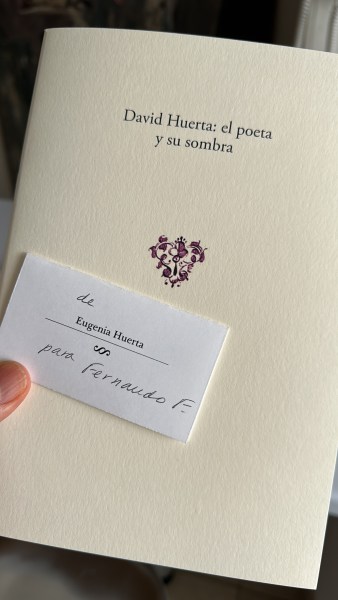 David Huerta: el poeta
y su sombra
de
Eugenia Huerta
para Fernando F.